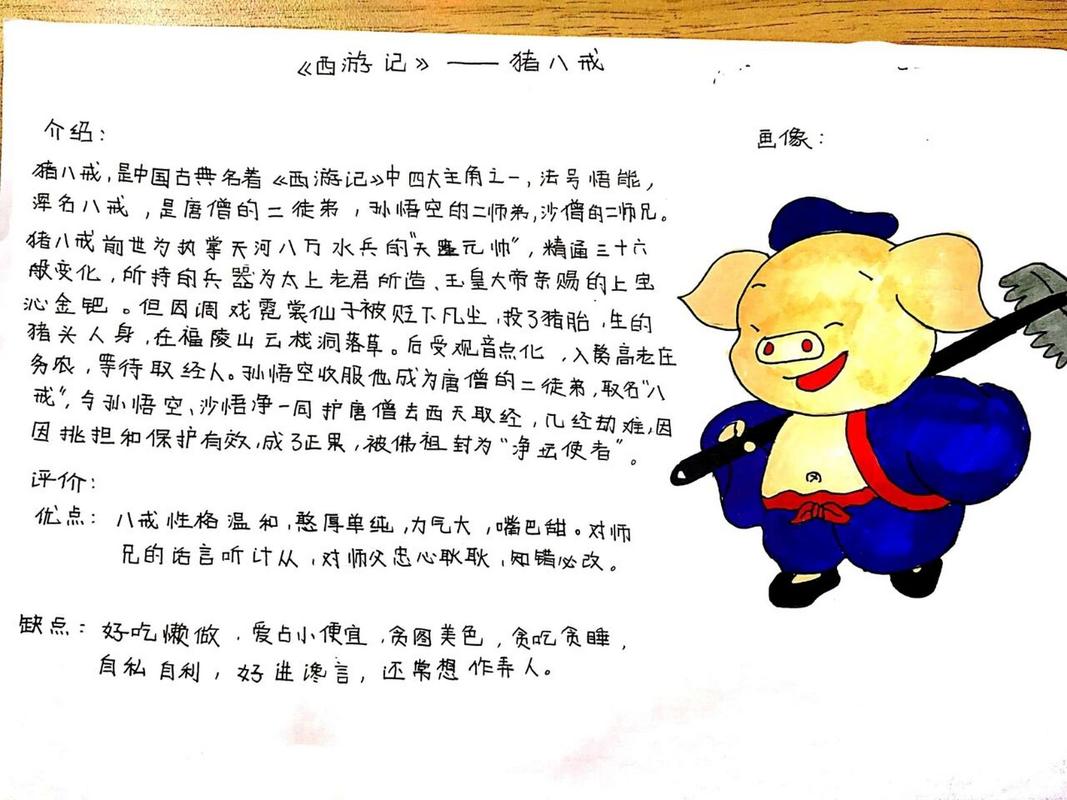 《西游记》——猪八戒
介绍:
画像:
猪八戒,是中国古典名着《西游记》中四大主角之一,法号悟能,
浑名八戒,是唐僧的二徒弟,孙悟空的二师弟,沙僧的二师兄。
猪八戒前世为执掌天河八万水兵的"天蓬元帅",精通三十六
般变化,所持的兵器为太上老君所造、玉皇大帝亲赐的上宝
沁金钯。但因调戏霓裳仙子被贬下凡尘,投了猪胎,生的
猪头人身,在福陵山云栈洞落草。后受观音点化,入赘高老庄
务农,等待取经人。孙悟空收服他成为唐僧的二徒弟,取名"八
戒",令孙悟空、沙悟净一同护唐僧去西天取经,几经劫难,因
因挑担和保护有效,成了正果,被佛祖封为"净坛使者"。
评价:
优点:八戒性格温和,憨厚单纯,力气大,嘴巴甜。对师
兄的话言听计从,对师父忠心耿耿,知错必改。
缺点:好吃懒做,爱占小便宜,贪图美色,贪吃贪睡,
自私自利,好进谗言,还常想作弄人。